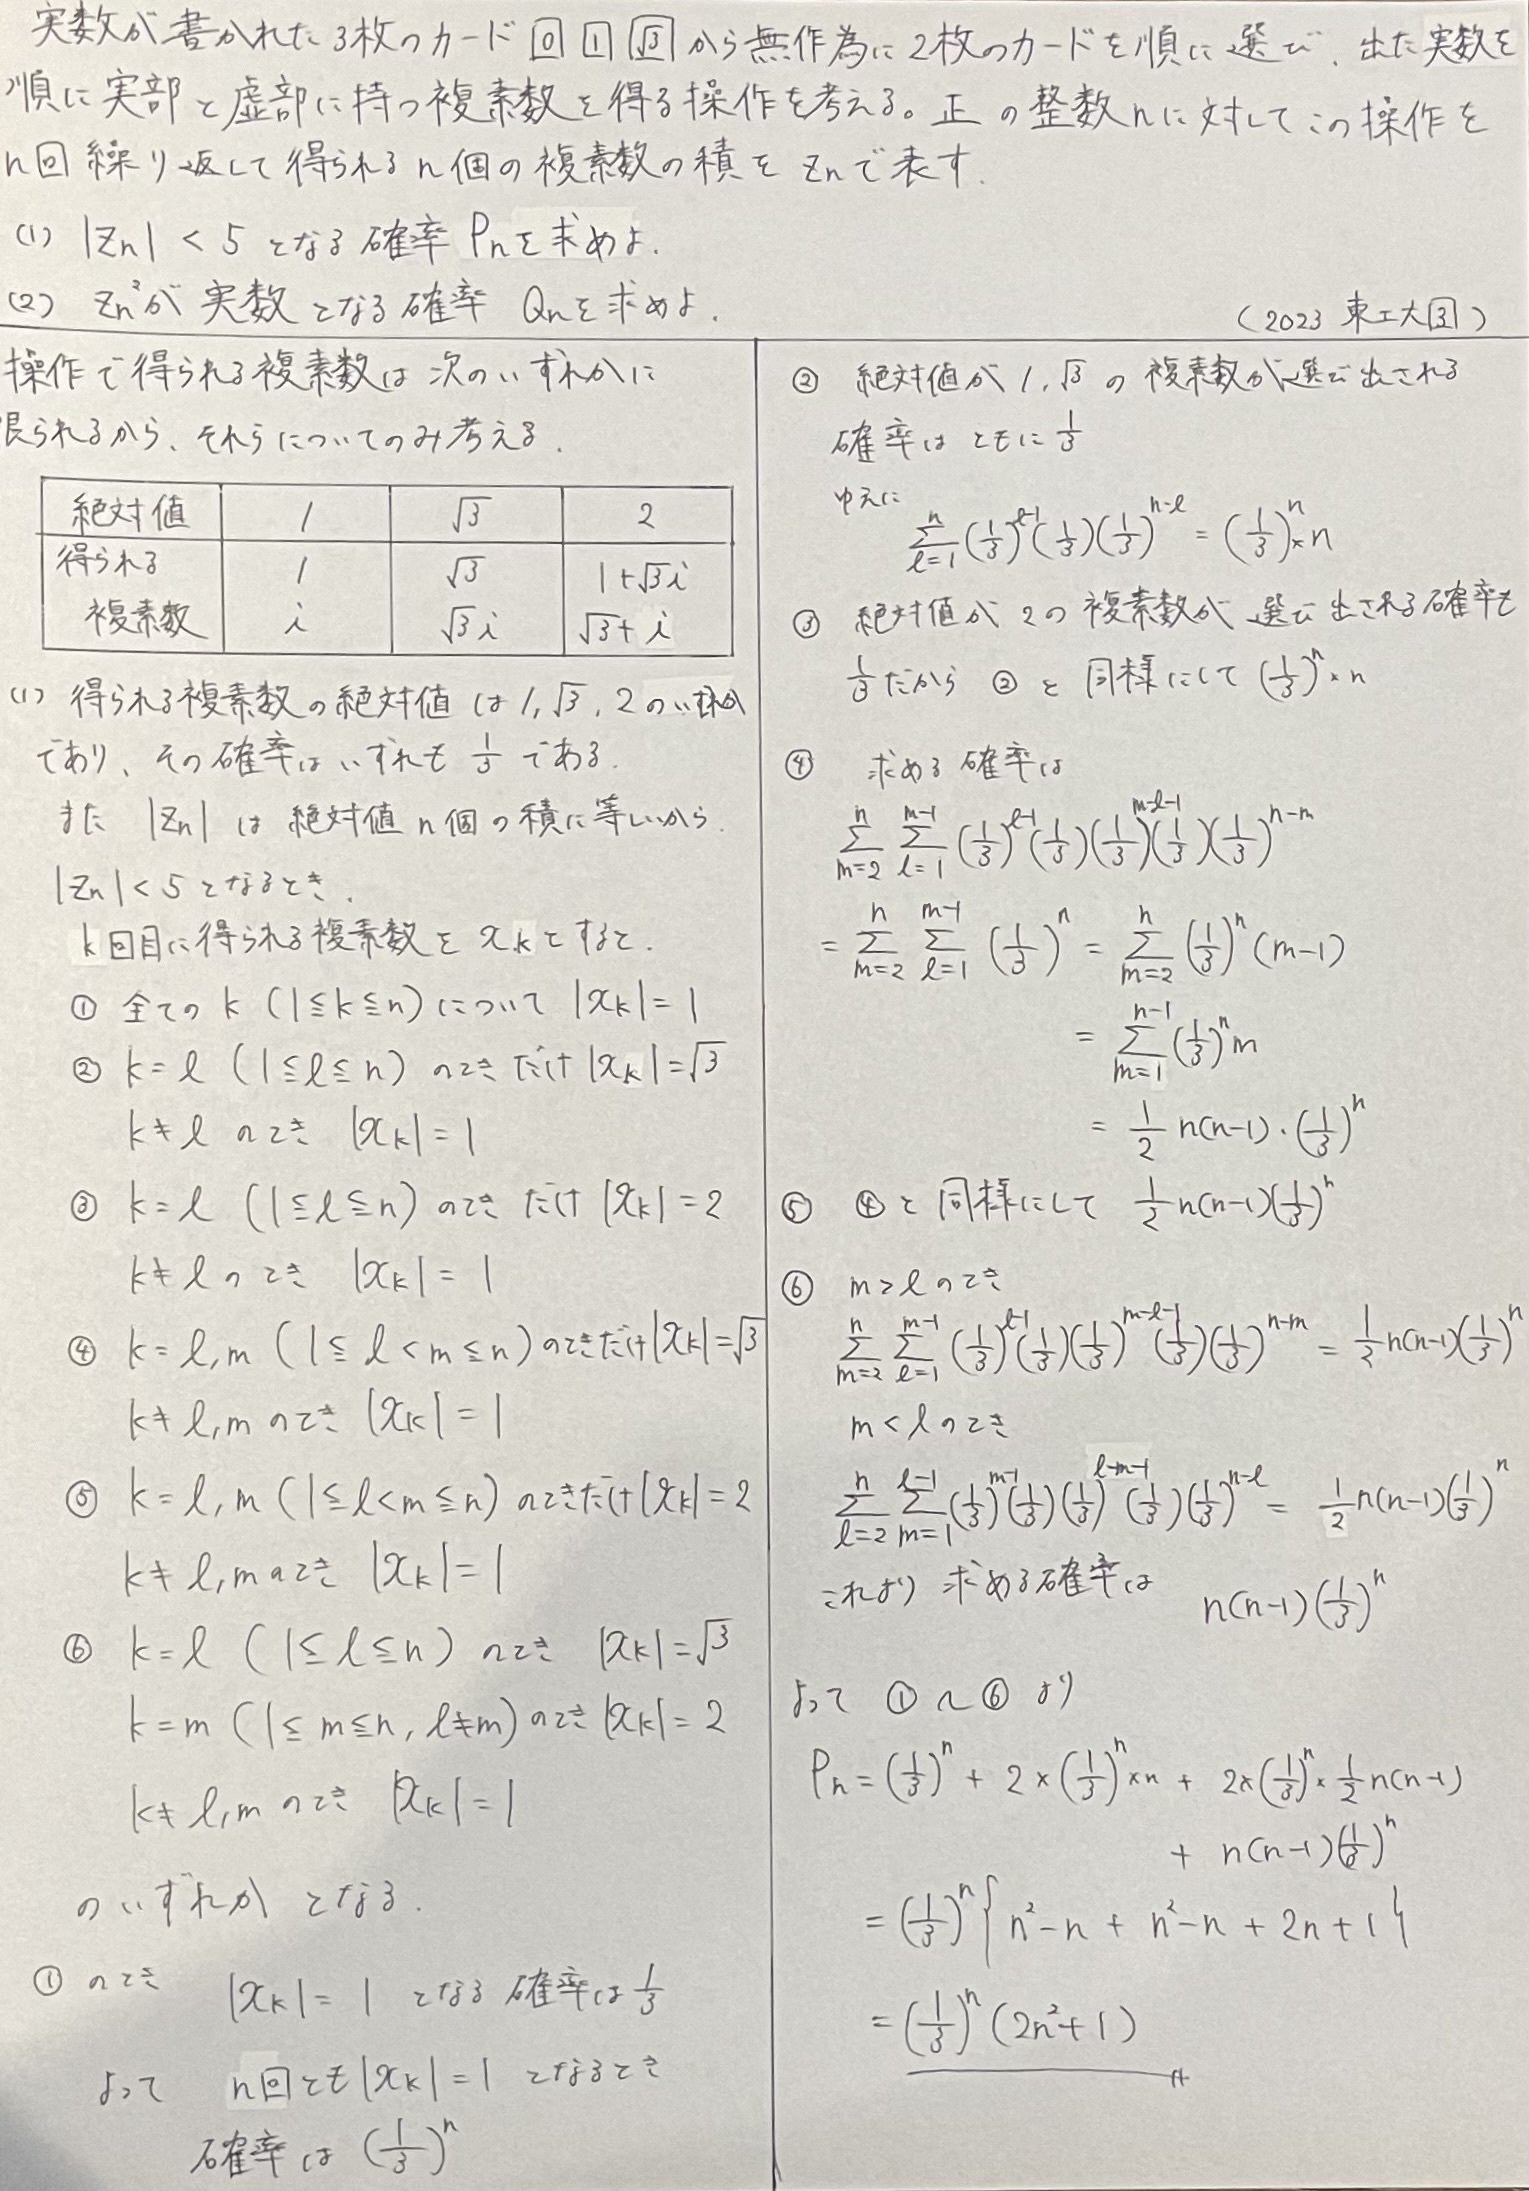 実数が書かれた3枚のカード 0 1 √3 から無作為に2枚のカードを順に選び、出た実数を
順に実部と虚部に持つ複素数を得る操作を考える。正の整数nに対してこの操作を
n回繰り返して得られるn個の複素数の積をZnで表す.
(1) |Zn| < 5 となる確率 Pnを求めよ.
(2) Zn²が実数となる確率 Qnを求めよ.
(2023 東工大 3)
操作で得られる複素数は次のいずれかに
限られるから、それらについてのみ考える.
絶対値 1 √3 2
得られる 1 √3 1+√3i
複素数 i √3i √3+i
(1) 得られる複素数の絶対値は1,√3,2のいずれか
であり、その確率はいずれも 1/3 である.
また |Zn| は絶対値n個の積に等しいから.
|Zn| < 5 となるとき.
k回目に得られる複素数を xk とすると.
① 全ての k (1≦k≦n) について |xk| = 1
② k = l (1≦l≦n) のときだけ |xk| = √3
k≠l のとき |xk| = 1
③ k = l (1≦l≦n) のときだけ |xk| = 2
k≠l のとき |xk| = 1
④ k = l,m (1≦l<m≦n) のときだけ |xk| = √3
k≠l,m のとき |xk| = 1
⑤ k = l,m (1≦l<m≦n) のときだけ |xk| = 2
k≠l,m のとき |xk| = 1
⑥ k = l (1≦l≦n) のとき |xk| = √3
k = m (1≦m≦n, l≠m) のとき |xk| = 2
k≠l,m のとき |xk| = 1
のいずれかとなる.
① のとき |xk| = 1 となる確率は 1/3
よって n回とも |xk| = 1 となるとき
確率は (1/3)^n
② 絶対値が 1,√3 の複素数が選び出される
確率はともに 1/3
ゆえに
Σ_{l=1}^{n} (1/3)^{l-1} (1/3) (1/3)^{n-l} = (1/3)^n × n
③ 絶対値が 2 の複素数が選び出される確率も
1/3 だから ② と同様にして (1/3)^n × n
④ 求める確率は
Σ_{m=2}^{n} Σ_{l=1}^{m-1} (1/3)^{l-1} (1/3) (1/3)^{m-l-1} (1/3) (1/3)^{n-m}
= Σ_{m=2}^{n} Σ_{l=1}^{m-1} (1/3)^n = Σ_{m=2}^{n} (1/3)^n (m-1)
= Σ_{m=1}^{n-1} (1/3)^n m
= 1/2 n(n-1)・(1/3)^n
⑤ ④ と同様にして 1/2 n(n-1)(1/3)^n
⑥ m > l のとき
Σ_{m=2}^{n} Σ_{l=1}^{m-1} (1/3)^{l-1} (1/3) (1/3)^{m-l-1} (1/3) (1/3)^{n-m} = 1/2 n(n-1)(1/3)^n
m < l のとき
Σ_{l=2}^{n} Σ_{m=1}^{l-1} (1/3)^{m-1} (1/3) (1/3)^{l-m-1} (1/3) (1/3)^{n-l} = 1/2 n(n-1)(1/3)^n
これより求める確率は n(n-1)(1/3)^n
よって ①〜⑥ より
Pn = (1/3)^n + 2×(1/3)^n×n + 2×(1/3)^n×1/2 n(n-1)
+ n(n-1)(1/3)^n
= (1/3)^n { n²-n + n²-n + 2n + 1 }
= (1/3)^n (2n²+1)